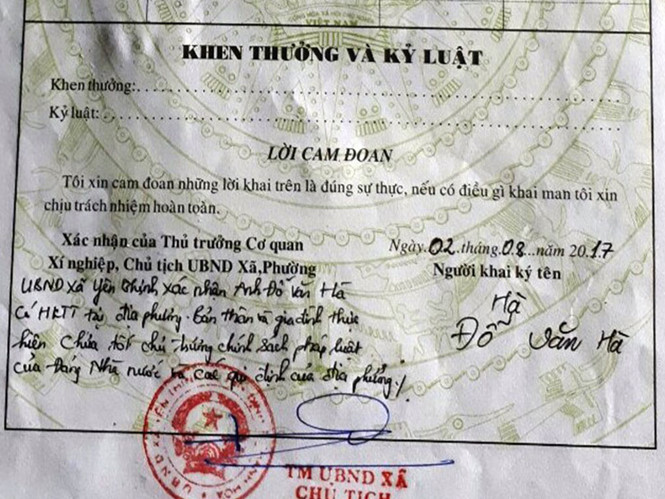 VIỆT NAM
KHEN THƯỞNG VÀ KỶ LUẬT
Khen thưởng:
Kỷ luật:
LỜI CAM ĐOAN
Tôi xin cam đoan những lời khai trên là đúng sự thực, nếu có điều gì khai man tôi xin
chịu trách nhiệm hoàn toàn.
Xác nhận của Thủ trưởng Cơ quan
Ngày 02 tháng 08 năm 2017
Xí nghiệp, Chủ tịch UBND Xã,Phường
Người khai ký tên
UBND xã Yên Chính xác nhận Anh Đỗ Văn Hà
Có HKTT tại địa phương. Bản thân và gia đình thực
hiện Chưa tốt chủ trương chính sách pháp luật
của Đảng Nhà nước và các qui định của địa phương./
Hà
Đỗ Văn Hà
TM UBND XÃ
CHỦ TỊCH